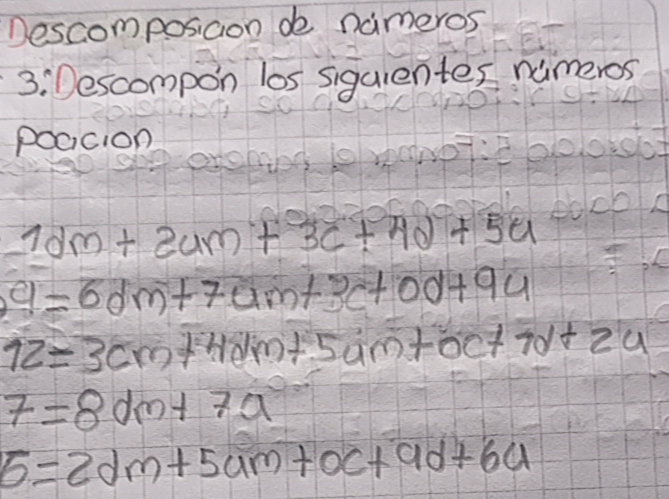 Descomposicion de números
3. Descompón los siguientes números
posicion
1dm + 2um + 3c + 4d + 5u
9 = 6dm + 7um + 3c + 0d + 9u
12 = 3cm + 4dm + 5um + 0c + 1d + 2u
7 = 8dm + 7u
6 = 2dm + 5um + 0c + 9d + 6u